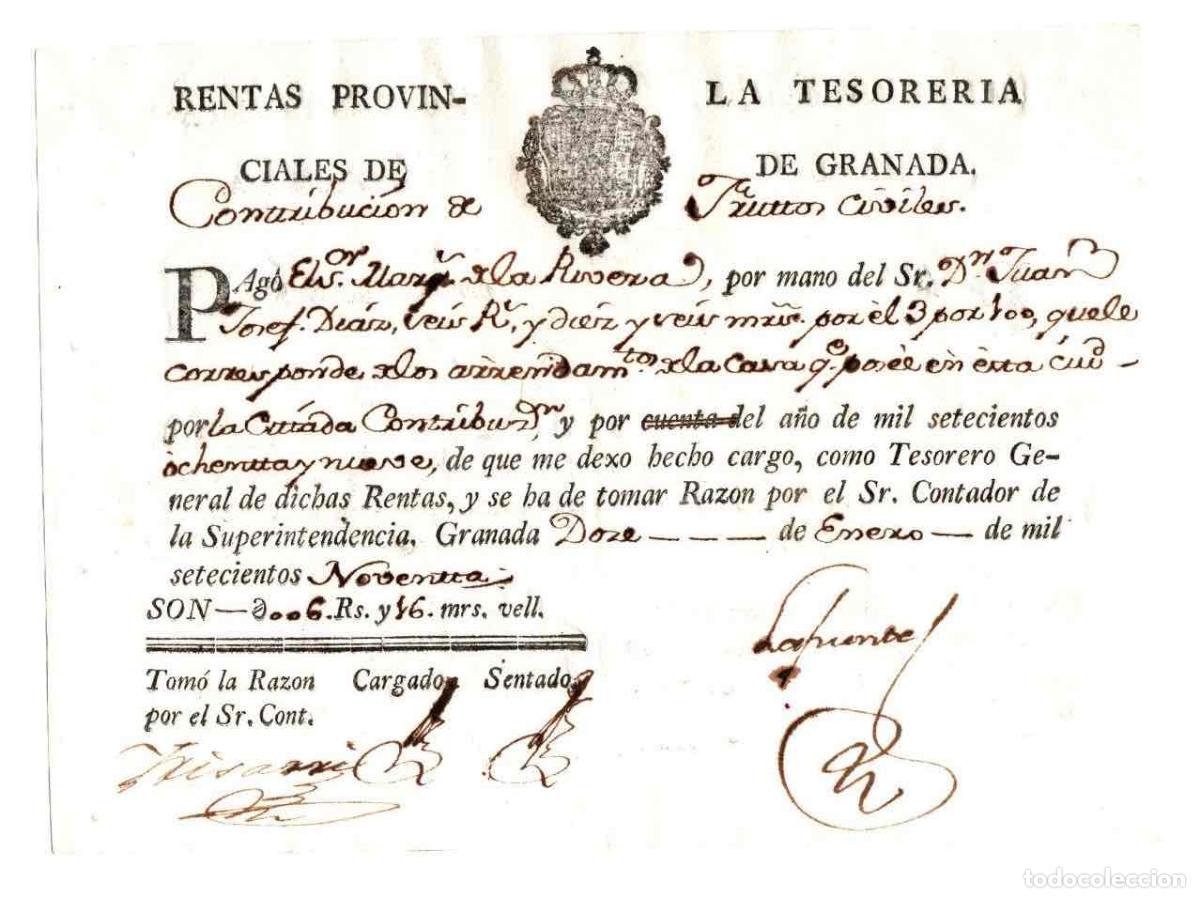 RENTAS PROVIN- LA TESORERIA
CIALES DE DE GRANADA.
Contribucion de Fruttos Civiles.
PAgó El Sor. Marqs. de la Rivera, por mano del Sr. Dn. Juan
Josef Diaz, seis Rs. y diez y seis mrs. por el 3 por 100, que le
corresponde de los arrendamtos. de la Casa qe. posee en esta Ciud.
por la Citada Contribuzn. y por cuenta del año de mil setecientos
ochentta y nueve, de que me dexo hecho cargo, como Tesorero Ge-
neral de dichas Rentas, y se ha de tomar Razon por el Sr. Contador de
la Superintendencia. Granada Doze - - - de Enero - de mil
setecientos Noventta
SON - 006. Rs. y 16. mrs. vell.
Lapuente
Tomó la Razon Cargado Sentado
por el Sr. Cont.
Yrisarri
todocoleccion